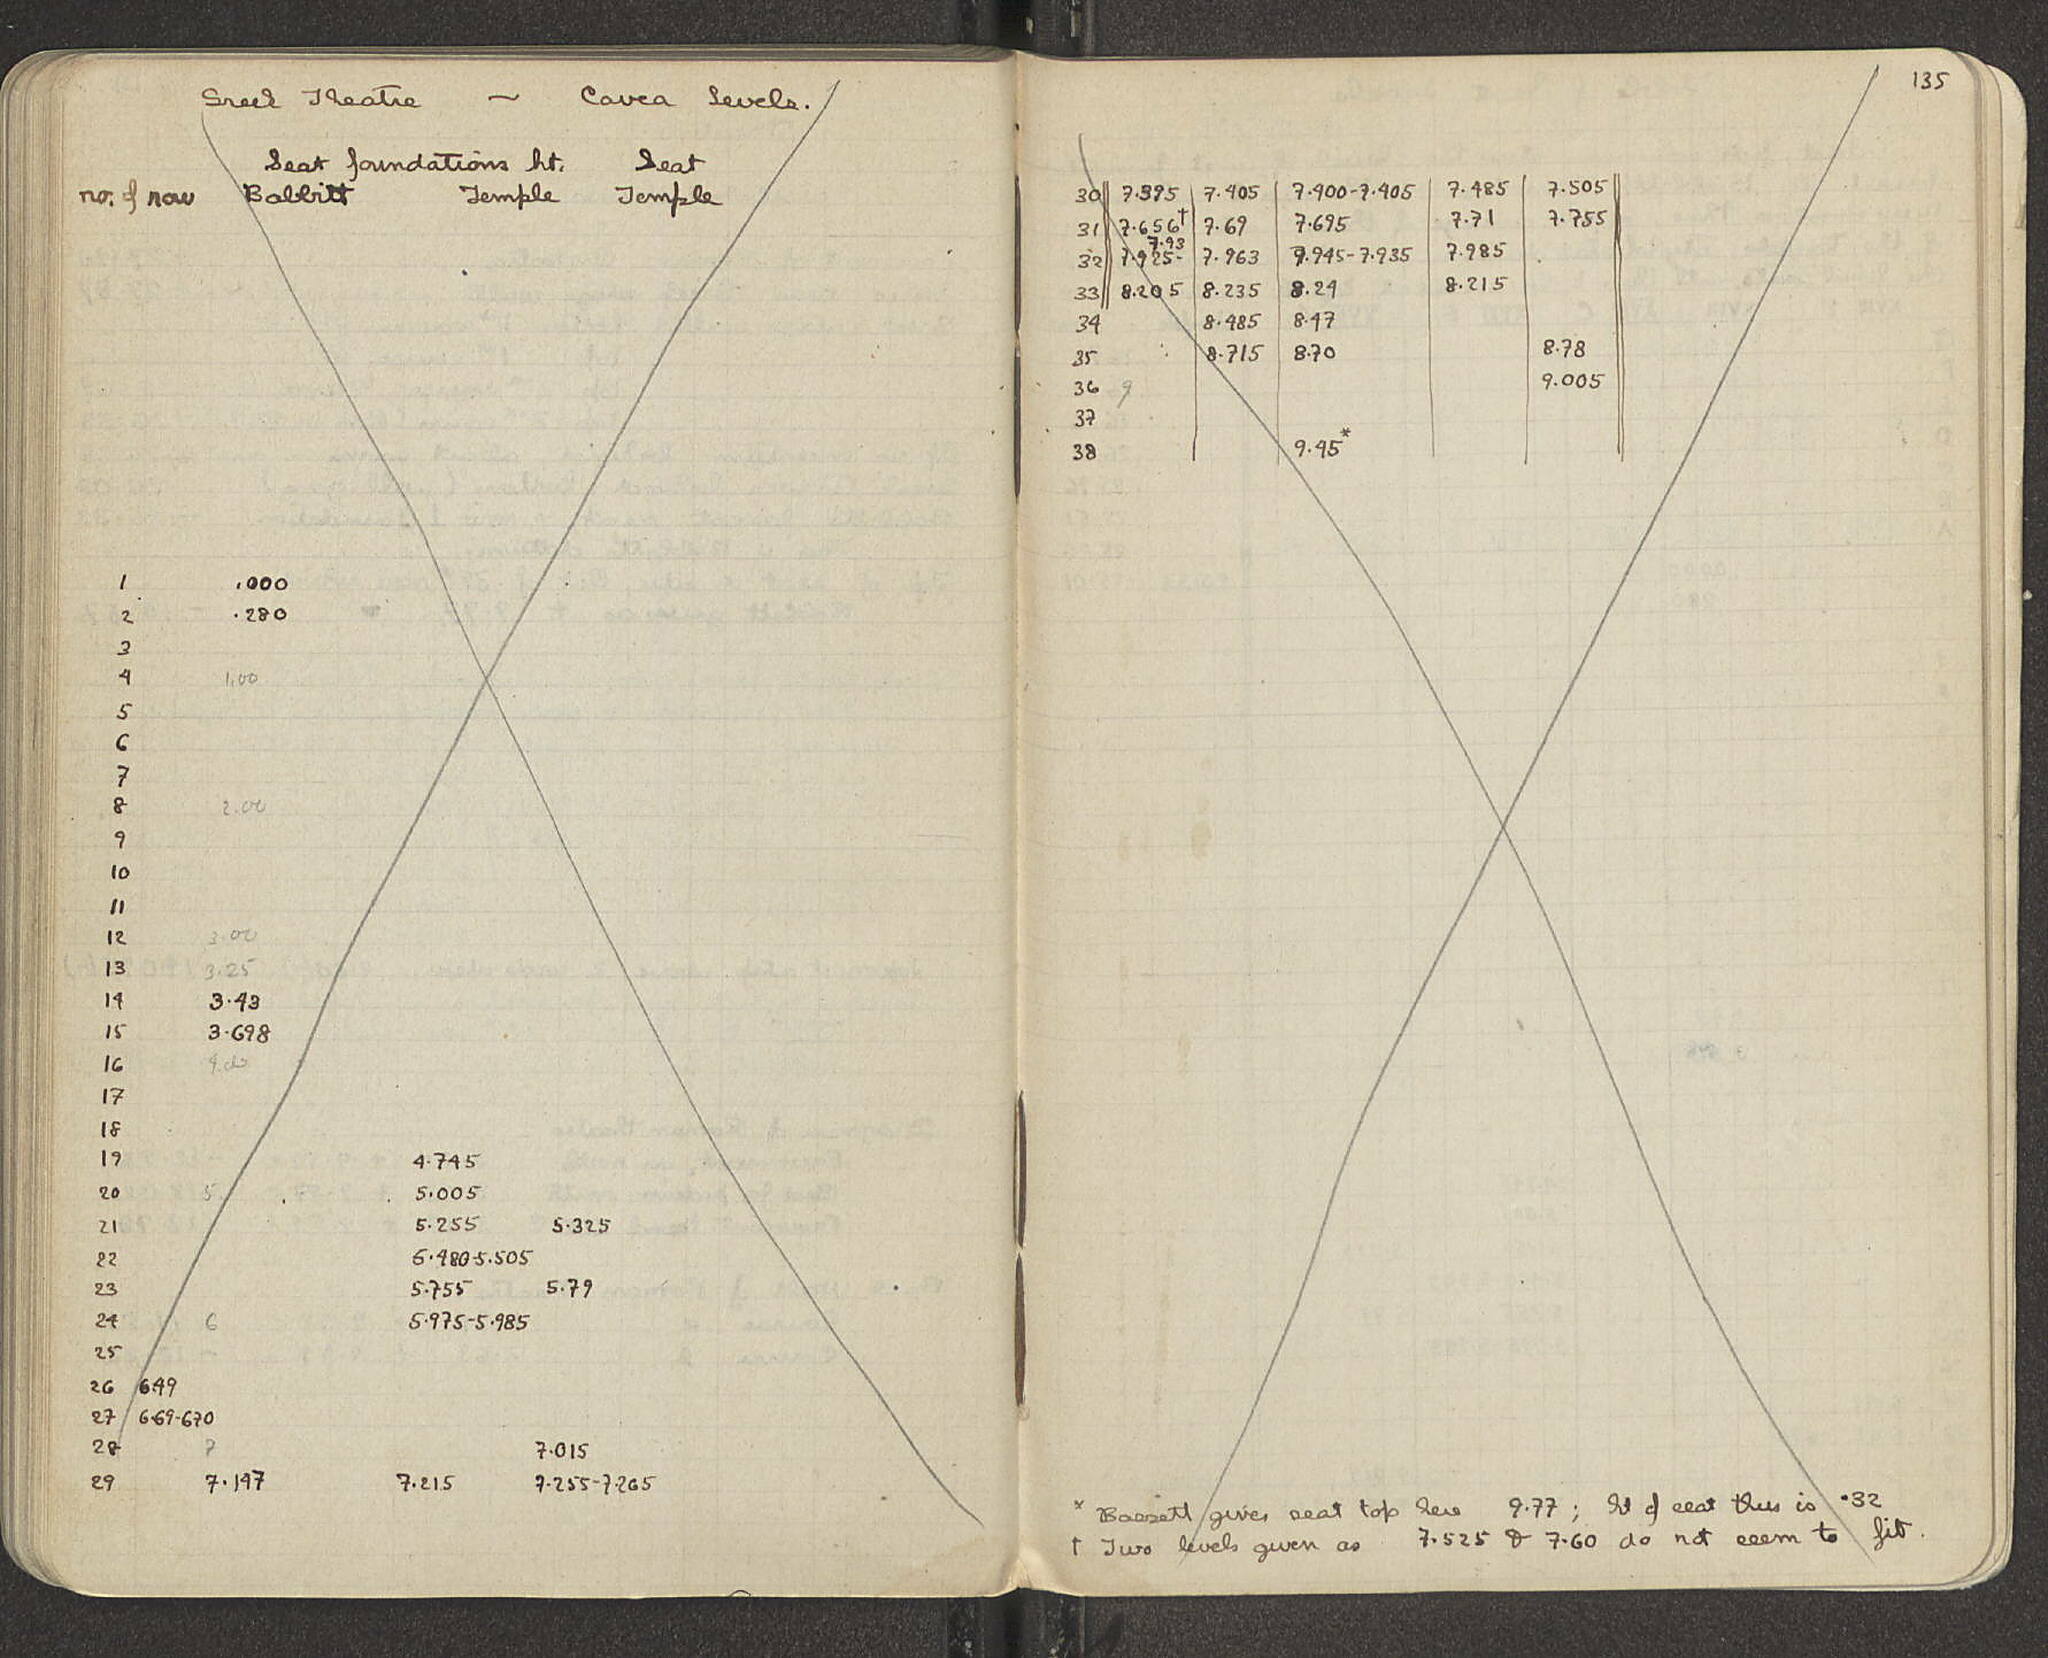 Greek Theatre ~ Cavea Levels.
Seat foundations ht. Seat
no. of row Babbitt Temple Temple
1 .000
2 .280
3
4 1.00
5
6
7
8 2.00
9
10
11
12 3.00
13 3.25
14 3.43
15 3.698
16 4.00
17
18
19 4.745
20 5 5.005
21 5.255 5.325
22 5.480-5.505
23 5.755 5.79
24 6 5.975-5.985
25
26 6.49
27 6.69-6.70
28 7 7.015
29 7.147 7.215 7.255-7.265
135
30 7.395 7.405 7.400-7.405 7.485 7.505
31 7.656† 7.69 7.695 7.71 7.755
32 7.925-7.93 7.963 7.945-7.935 7.985
33 8.205 8.235 8.24 8.215
34 8.485 8.47
35 8.715 8.70 8.78
36 9 9.005
37
38 9.45*
* gives seat top here 9.77; ht of seat thus is .32
† Two levels given as 7.525 & 7.60 do not seem to fit.